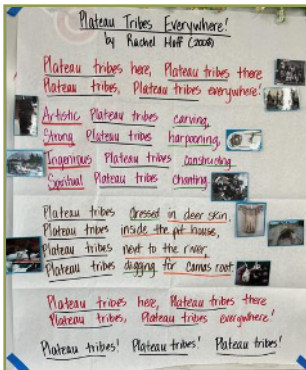 Plateau Tribes Everywhere!
by Rachel Hoff (2008)
Plateau tribes here, Plateau tribes there
Plateau tribes, Plateau tribes everywhere!
Artistic Plateau tribes carving,
Strong Plateau tribes harpooning,
Ingenious Plateau tribes constructing
Spiritual Plateau tribes chanting.
Plateau tribes dressed in deer skin,
Plateau tribes inside the pit house,
Plateau tribes next to the river,
Plateau tribes digging for camas root.
Plateau tribes here, Plateau tribes there
Plateau tribes, Plateau tribes everywhere!
Plateau tribes! Plateau tribes! Plateau tribes!